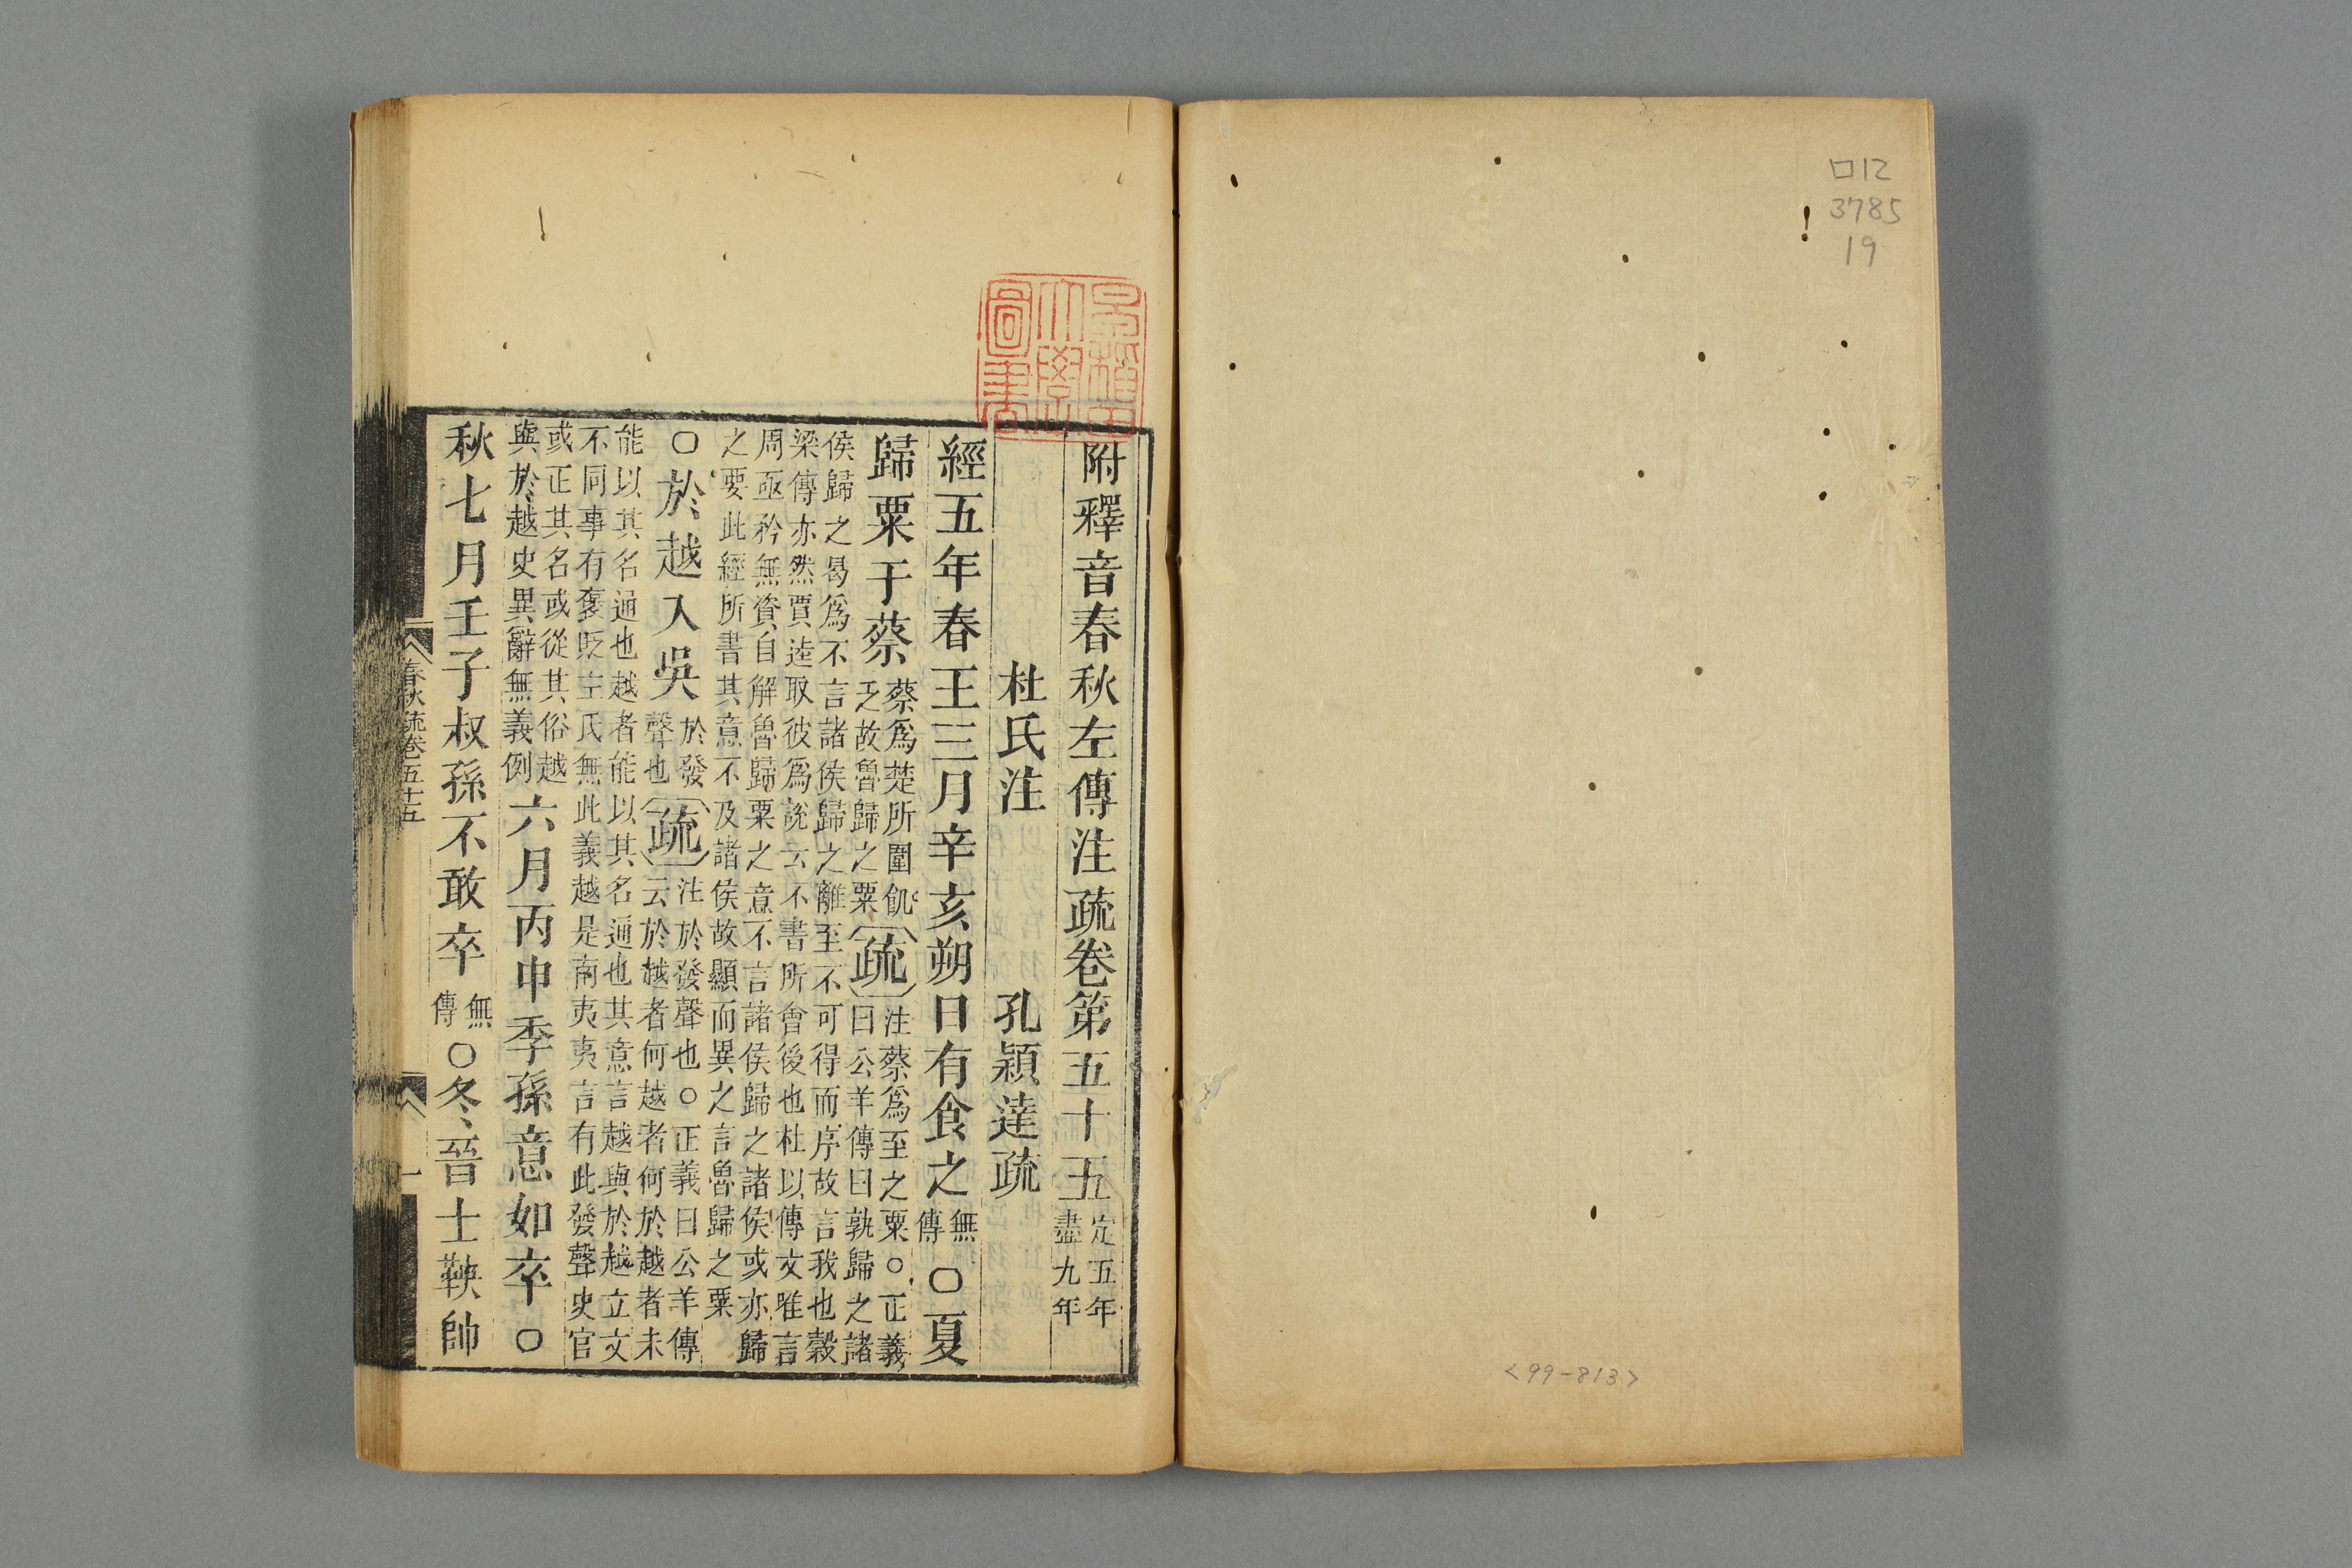 口12
3785
19
<99-813>
早稲田
大學
圖書
附釋音春秋左傳注疏卷第五十五 定五年 盡九年
杜氏注 孔穎達疏
經五年春王三月辛亥朔日有食之 無傳 ○夏
歸粟于蔡 蔡爲楚所圍飢 乏故魯歸之粟 疏 注蔡爲至之粟○正義 曰公羊傳曰孰歸之諸
侯歸之曷爲不言諸侯歸之離至不可得而序故言我也榖
梁傳亦然賈逵取彼爲說云不書所會後也杜以傳文唯言
周亟矜無資自解魯歸粟之意不言諸侯歸之諸侯或亦歸
之要此經所書其意不及諸侯故顯而異之言魯歸之粟
○於越入吳 於發 聲也 疏 注於發聲也○正義曰公羊傳 云於越者何越者何於越者未
能以其名通也越者能以其名通也其意言越與於越立文
不同事有褒貶左氏無此義越是南夷夷言有此發聲史官
或正其名或從其俗越
與於越史異辭無義例 六月丙申季孫意如卒○
秋七月壬子叔孫不敢卒 無傳 ○冬晉士鞅帥
春秋疏卷五十五
一